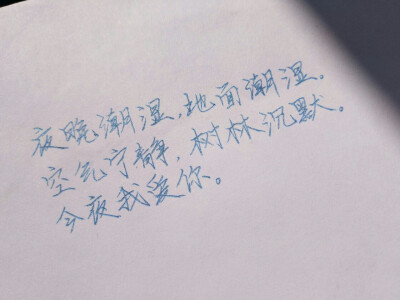 夜晚潮湿,地面潮湿。
空气宁静,树林沉默。
今夜我爱你。